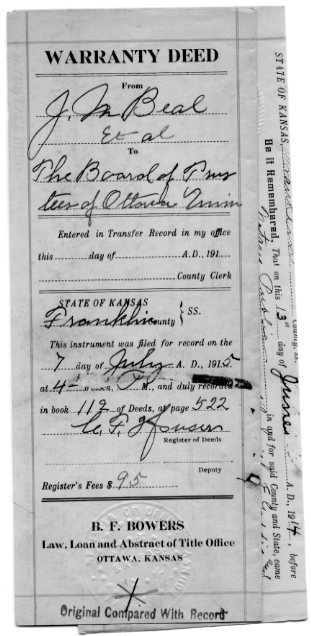 WARRANTY DEED
From
J. M Beal
Et al
To
The Board of Trus
tees of Ottawa Univ
Entered in Transfer Record in my office
this day of A. D., 191
County Clerk
STATE OF KANSAS
Franklin County } SS.
This instrument was filed for record on the
7 day of July A. D., 1915
at 4 o'clock, P. M., and duly recorded
in book 112 of Deeds, at page 522
Register of Deeds
Deputy
Register's Fees $ 95
B. F. BOWERS
Law, Loan and Abstract of Title Office
OTTAWA, KANSAS
Original Compared With Record
STATE OF KANSAS,
County, ss.
Be it Remembered, That on this 13" day of June A. D., 1914, before
in and for said County and State, came